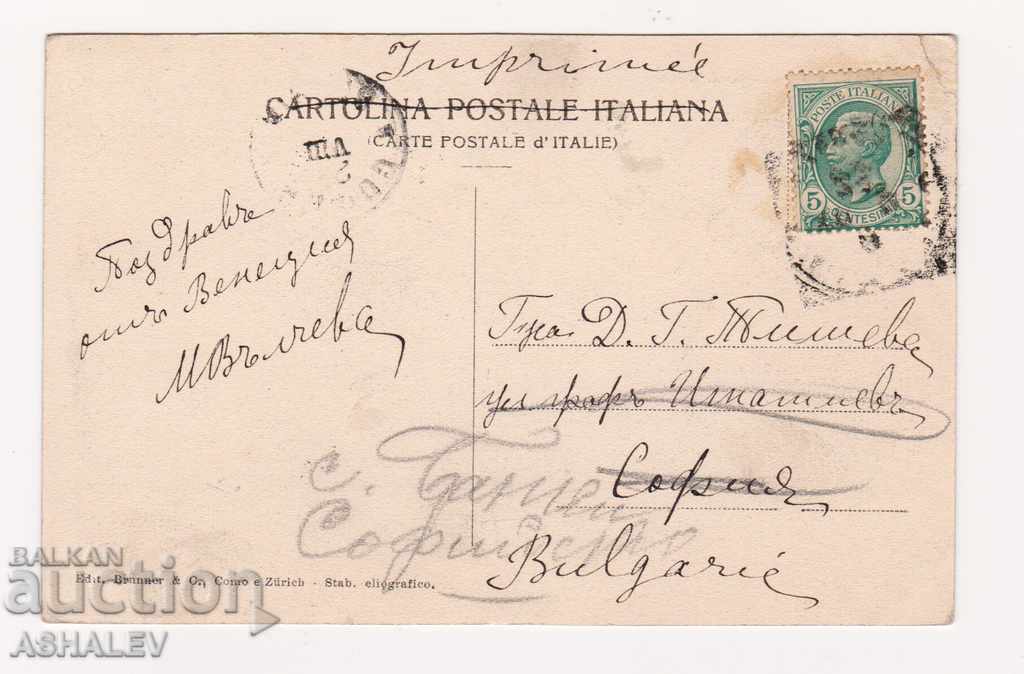 Imprimée
CARTOLINA POSTALE ITALIANA
(CARTE POSTALE d'ITALIE)
POSTE ITALIANE
5 5
CENTESIMI
VIII
2
Поздравъ
отъ Венеция
МВълчева
Г-жа Д. Г. Тишева
ул графъ Игнатиевъ
София
с. Банкя
Софийско
Bulgarie
Edit. Brunner & C., Como e Zürich - Stab. eliografico.
BALKAN
auction
ASHALEV